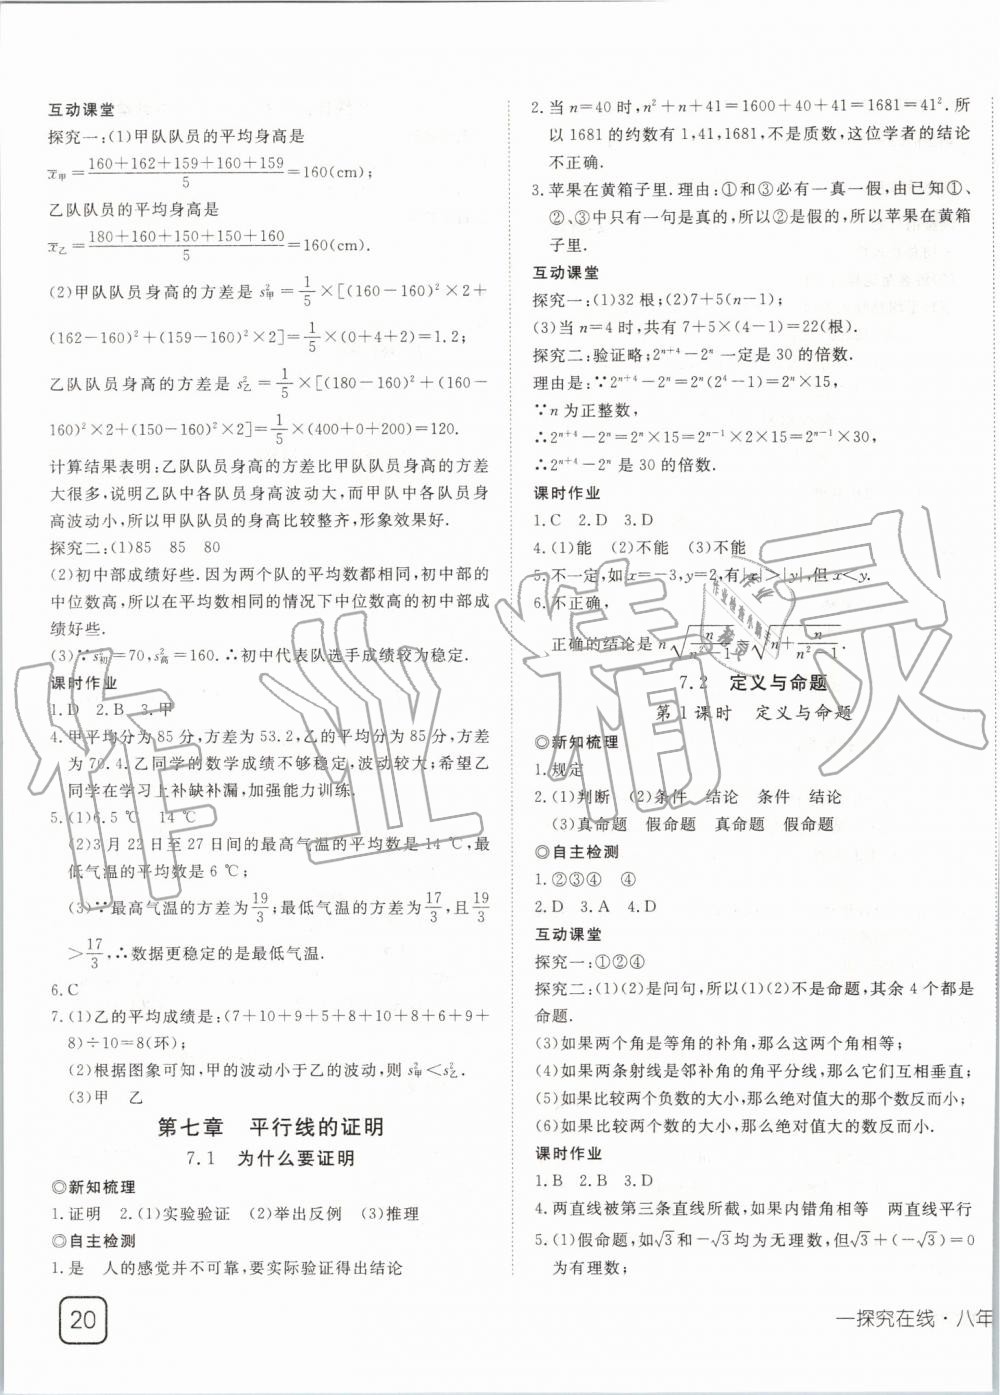 互动课堂
探究一:(1)甲队队员的平均身高是
x̄甲=(160+162+159+160+159)/5=160(cm);
乙队队员的平均身高是
x̄乙=(180+160+150+150+160)/5=160(cm).
(2)甲队队员身高的方差是s²甲=1/5×[(160-160)²×2+
(162-160)²+(159-160)²×2]=1/5×(0+4+2)=1.2,
乙队队员身高的方差是s²乙=1/5×[(180-160)²+(160-
160)²×2+(150-160)²×2]=1/5×(400+0+200)=120.
计算结果表明:乙队队员身高的方差比甲队队员身高的方差
大很多,说明乙队中各队员身高波动大,而甲队中各队员身
高波动小,所以甲队队员的身高比较整齐,形象效果好.
探究二:(1)85 85 80
(2)初中部成绩好些.因为两个队的平均数都相同,初中部的
中位数高,所以在平均数相同的情况下中位数高的初中部成
绩好些.
(3)∵s²初=70,s²高=160.∴初中代表队选手成绩较为稳定.
课时作业
1.D 2.B 3.甲
4.甲平均分为85分,方差为53.2,乙的平均分为85分,方差
为70.4.乙同学的数学成绩不够稳定,波动较大;希望乙
同学在学习上补缺补漏,加强能力训练.
5.(1)6.5 ℃ 14 ℃
(2)3月22日至27日间的最高气温的平均数是14 ℃,最
低气温的平均数是6 ℃;
(3)∵最高气温的方差为19/3;最低气温的方差为17/3,且19/3
>17/3,∴数据更稳定的是最低气温.
6.C
7.(1)乙的平均成绩是:(7+10+9+5+8+10+8+6+9+
8)÷10=8(环);
(2)根据图象可知,甲的波动小于乙的波动,则s²甲<s²乙.
(3)甲 乙
第七章 平行线的证明
7.1 为什么要证明
◎新知梳理
1.证明 2.(1)实验验证 (2)举出反例 (3)推理
◎自主检测
1.是 人的感觉并不可靠,要实际验证得出结论
20
2.当n=40时,n²+n+41=1600+40+41=1681=41².所
以1681的约数有1,41,1681,不是质数,这位学者的结论
不正确.
3.苹果在黄箱子里.理由:①和③必有一真一假,由已知①、
②、③中只有一句是真的,所以②是假的,所以苹果在黄箱
子里.
互动课堂
探究一:(1)32根;(2)7+5(n-1);
(3)当n=4时,共有7+5×(4-1)=22(根).
探究二:验证略;2ⁿ⁺⁴-2ⁿ一定是30的倍数.
理由是:∵2ⁿ⁺⁴-2ⁿ=2ⁿ(2⁴-1)=2ⁿ×15,
∵n为正整数,
∴2ⁿ⁺⁴-2ⁿ=2ⁿ×15=2ⁿ⁻¹×2×15=2ⁿ⁻¹×30,
∴2ⁿ⁺⁴-2ⁿ是30的倍数.
课时作业
1.C 2.D 3.D
4.(1)能 (2)不能 (3)不能
5.不一定,如x=-3,y=2,有|x|>|y|,但x<y.
6.不正确,
正确的结论是n√(n/(n²-1))=√(n+n/(n²-1))
7.2 定义与命题
第1课时 定义与命题
◎新知梳理
1.规定
2.(1)判断 (2)条件 结论 条件 结论
(3)真命题 假命题 真命题 假命题
◎自主检测
1.②③④ ④
2.D 3.A 4.D
互动课堂
探究一:①②④
探究二:(1)(2)是问句,所以(1)(2)不是命题,其余4个都是
命题.
(3)如果两个角是等角的补角,那么这两个角相等;
(4)如果两条射线是邻补角的角平分线,那么它们互相垂直;
(5)如果比较两个负数的大小,那么绝对值大的数反而小;
(6)如果比较两个数的大小,那么绝对值大的数反而小.
课时作业
1.B 2.B 3.D
4.两直线被第三条直线所截,如果内错角相等 两直线平行
5.(1)假命题,如√3和-√3均为无理数,但√3+(-√3)=0
为有理数;
一探究在线·八年
作业精灵